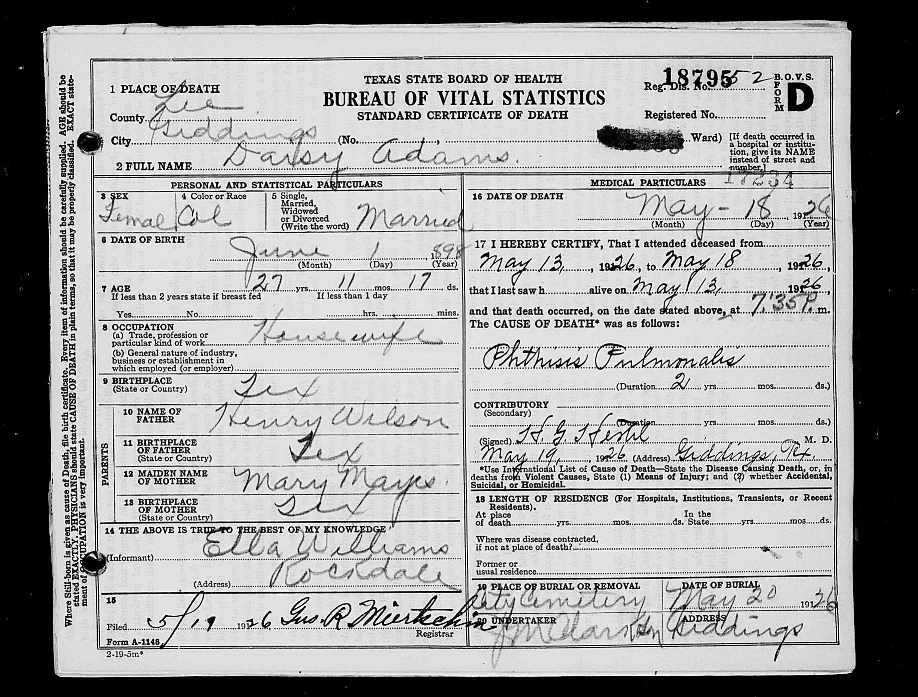 TEXAS STATE BOARD OF HEALTH
BUREAU OF VITAL STATISTICS
STANDARD CERTIFICATE OF DEATH
18795
Reg. Dis. No. 52
B.O.V.S.
FORM D
Registered No.
1 PLACE OF DEATH
County Lee
City Giddings (No. , Ward)
[If death occurred in a hospital or institution, give its NAME instead of street and number.]
2 FULL NAME Daisy Adams.
17234
PERSONAL AND STATISTICAL PARTICULARS
3 SEX Femal
4 Color or Race Col
5 Single, Married, Widowed or Divorced (Write the word) Married
6 DATE OF BIRTH
June 1 1898
(Month) (Day) (Year)
7 AGE 27 yrs. 11 mos. 17 ds.
If less than 2 years state if breast fed If less than 1 day
Yes No hrs. mins.
8 OCCUPATION
(a) Trade, profession or particular kind of work Housewife
(b) General nature of industry, business or establishment in which employed (or employer)
9 BIRTHPLACE
(State or Country) Tex
PARENTS
10 NAME OF FATHER Henry Wilson
11 BIRTHPLACE OF FATHER
(State or Country) Tex
12 MAIDEN NAME OF MOTHER Mary Mays.
13 BIRTHPLACE OF MOTHER
(State or Country) Tex
14 THE ABOVE IS TRUE TO THE BEST OF MY KNOWLEDGE
(Informant) Ella Williams
(Address) Rockdale
15
Filed 5/19 1926 Gus. R. Miertschin
Registrar
Form A-1148
2-19-5m*
MEDICAL PARTICULARS
16 DATE OF DEATH
May - 18 1926
(Month) (Day) (Year)
17 I HEREBY CERTIFY, That I attended deceased from
May 13, 1926, to May 18, 1926,
that I last saw h alive on May 13, 1926,
and that death occurred, on the date stated above, at 7:35 P. m.
The CAUSE OF DEATH* was as follows:
Phthisis Pulmonalis
(Duration 2 yrs. mos. ds.)
CONTRIBUTORY
(Secondary)
(Duration yrs. mos. ds.)
(Signed) H. G. M. D.
May 19, 1926 (Address) Giddings,
*Use International List of Cause of Death—State the Disease Causing Death, or, in deaths from Violent Causes, State (1) Means of Injury; and (2) whether Accidental, Suicidal, or Homicidal.
18 LENGTH OF RESIDENCE (For Hospitals, Institutions, Transients, or Recent Residents).
At place of death yrs. mos. ds. In the State yrs. mos. ds.
Where was disease contracted, if not at place of death?
Former or usual residence
19 PLACE OF BURIAL OR REMOVAL DATE OF BURIAL
City Cemetery May 20 1926
20 UNDERTAKER ADDRESS
Giddings
Where Still-born is given as cause of Death, file birth certificate. Every item of information should be carefully supplied. AGE should be
stated EXACTLY. PHYSICIANS should state CAUSE OF DEATH in plain terms, so that it may be properly classified. EXACT state-
ment of OCCUPATION is very important.